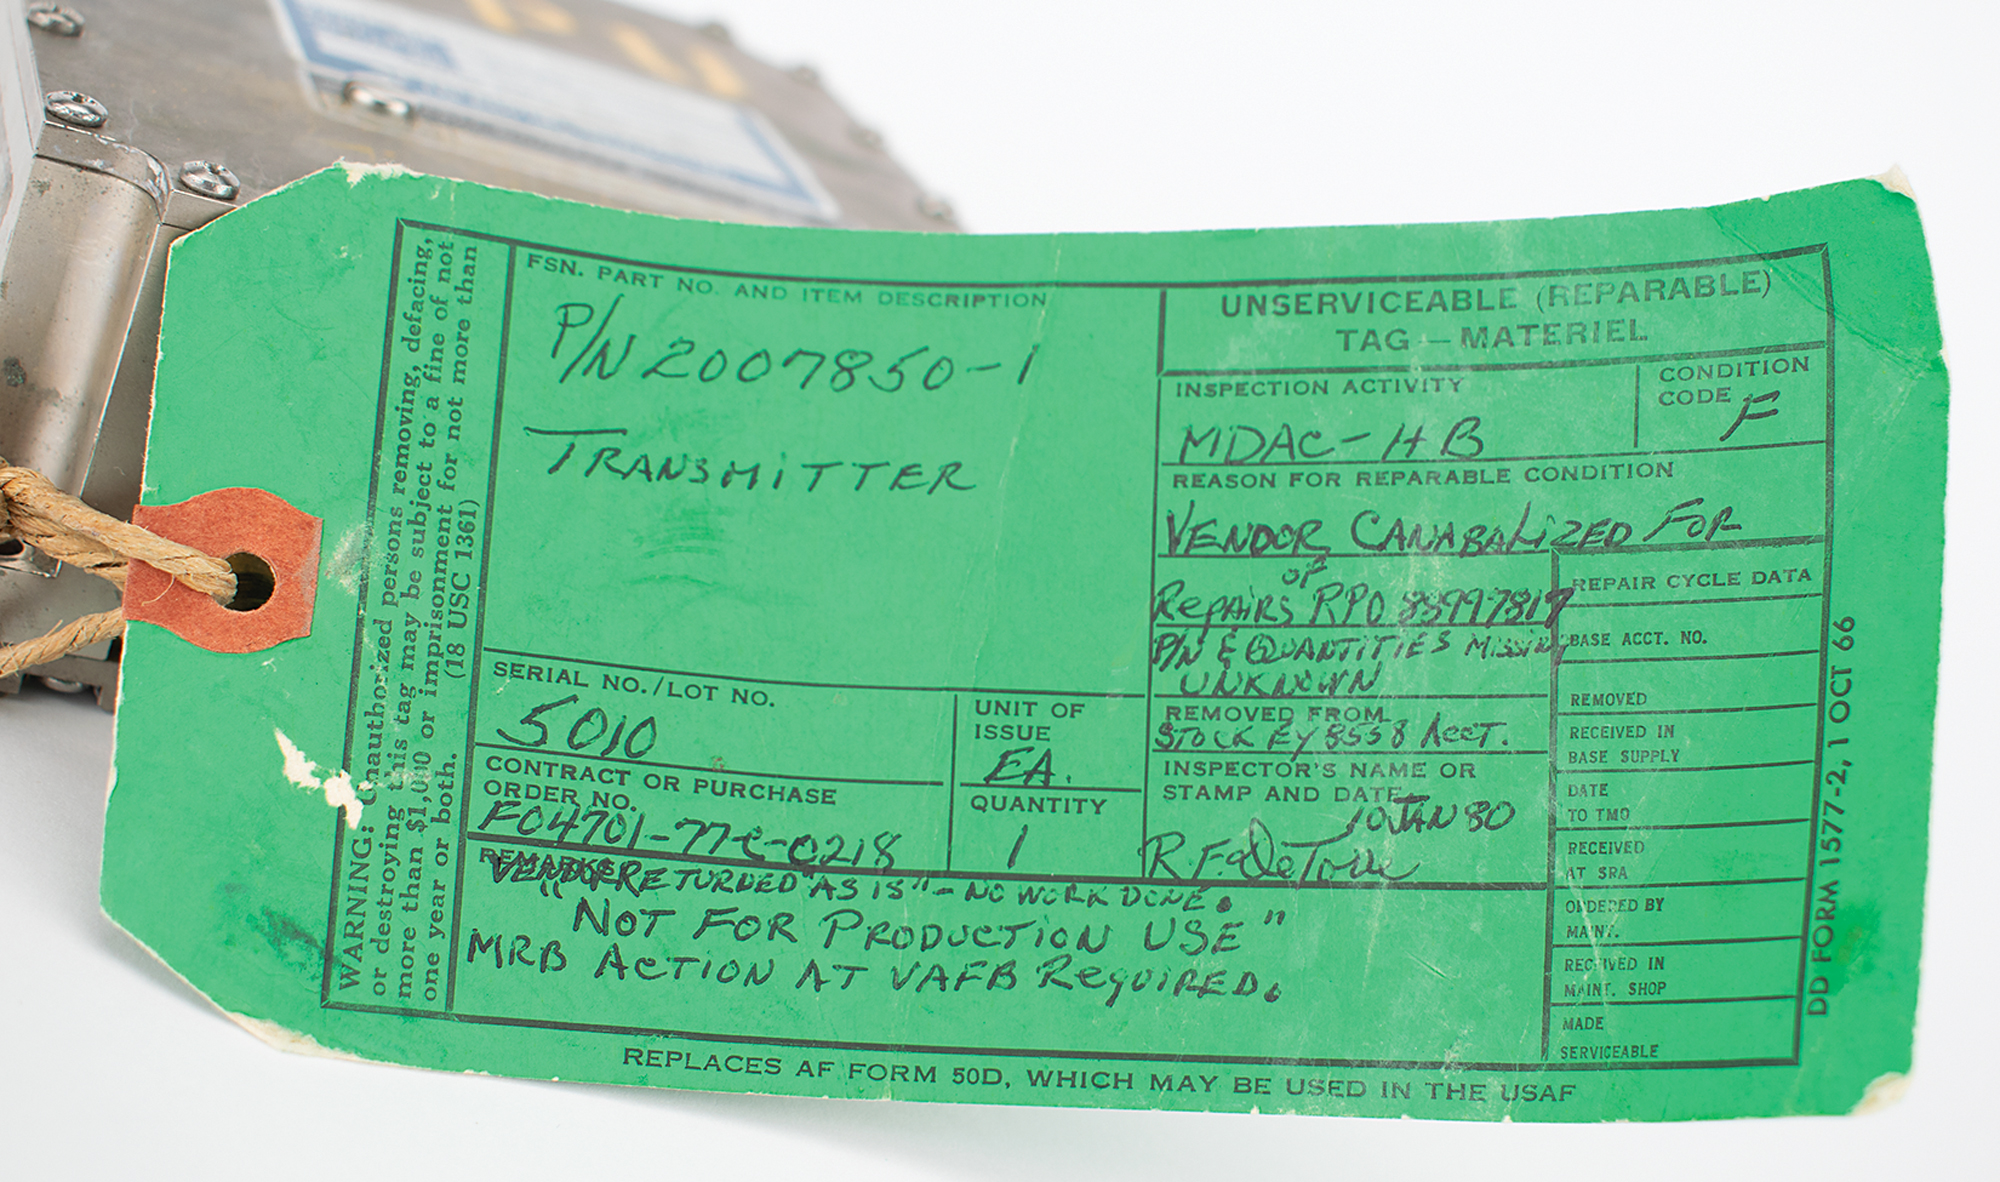 WARNING: Unauthorized persons removing, defacing,
or destroying this tag may be subject to a fine of not
more than $1,000 or imprisonment for not more than
one year or both.
(18 USC 1361)
FSN. PART NO. AND ITEM DESCRIPTION
P/N 2007850-1
TRANSMITTER
SERIAL NO./LOT NO.
5010
UNIT OF
ISSUE
EA.
CONTRACT OR PURCHASE
ORDER NO.
F04701-77-C-0218
QUANTITY
1
UNSERVICEABLE (REPARABLE)
TAG — MATERIEL
INSPECTION ACTIVITY
MDAC-HB
CONDITION
CODE F
REASON FOR REPARABLE CONDITION
VENDOR CANABALIZED FOR
OF
REPAIRS RPO 88997817
P/N & QUANTITIES MISSING
UNKNOWN
REMOVED FROM
STOCK EY8558 ACCT.
INSPECTOR'S NAME OR
STAMP AND DATE
10 JAN 80
REMARKS
VENDOR RETURNED "AS IS" - NO WORK DONE.
"NOT FOR PRODUCTION USE"
MRB ACTION AT VAFB REQUIRED.
REPAIR CYCLE DATA
BASE ACCT. NO.
REMOVED
RECEIVED IN
BASE SUPPLY
DATE
TO TMO
RECEIVED
AT SRA
ORDERED BY
MAINT.
RECEIVED IN
MAINT. SHOP
MADE
SERVICEABLE
DD FORM 1577-2, 1 OCT 66
REPLACES AF FORM 50D, WHICH MAY BE USED IN THE USAF